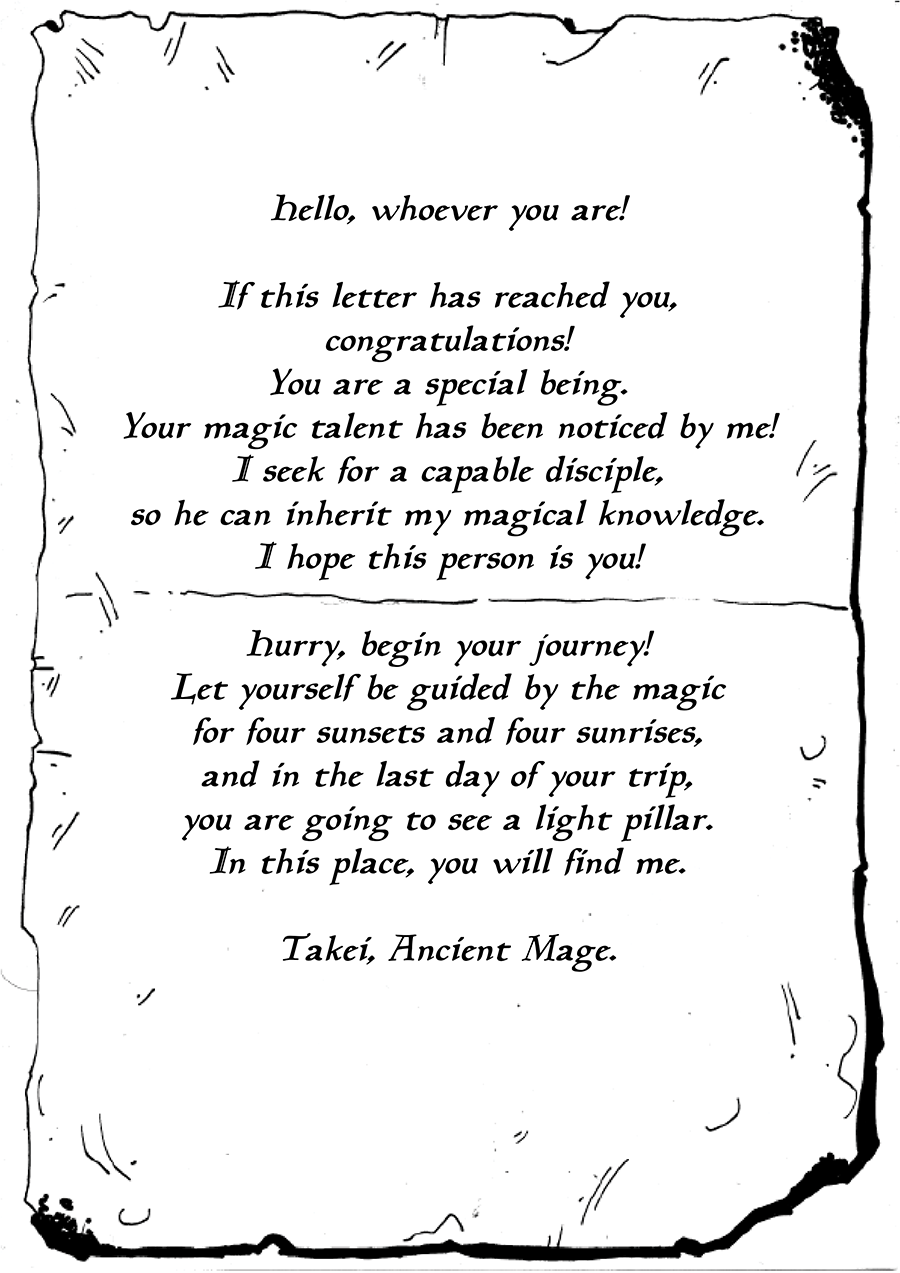 Hello, whoever you are!
If this letter has reached you,
congratulations!
You are a special being.
Your magic talent has been noticed by me!
I seek for a capable disciple,
so he can inherit my magical knowledge.
I hope this person is you!
Hurry, begin your journey!
Let yourself be guided by the magic
for four sunsets and four sunrises,
and in the last day of your trip,
you are going to see a light pillar.
In this place, you will find me.
Takei, Ancient Mage.